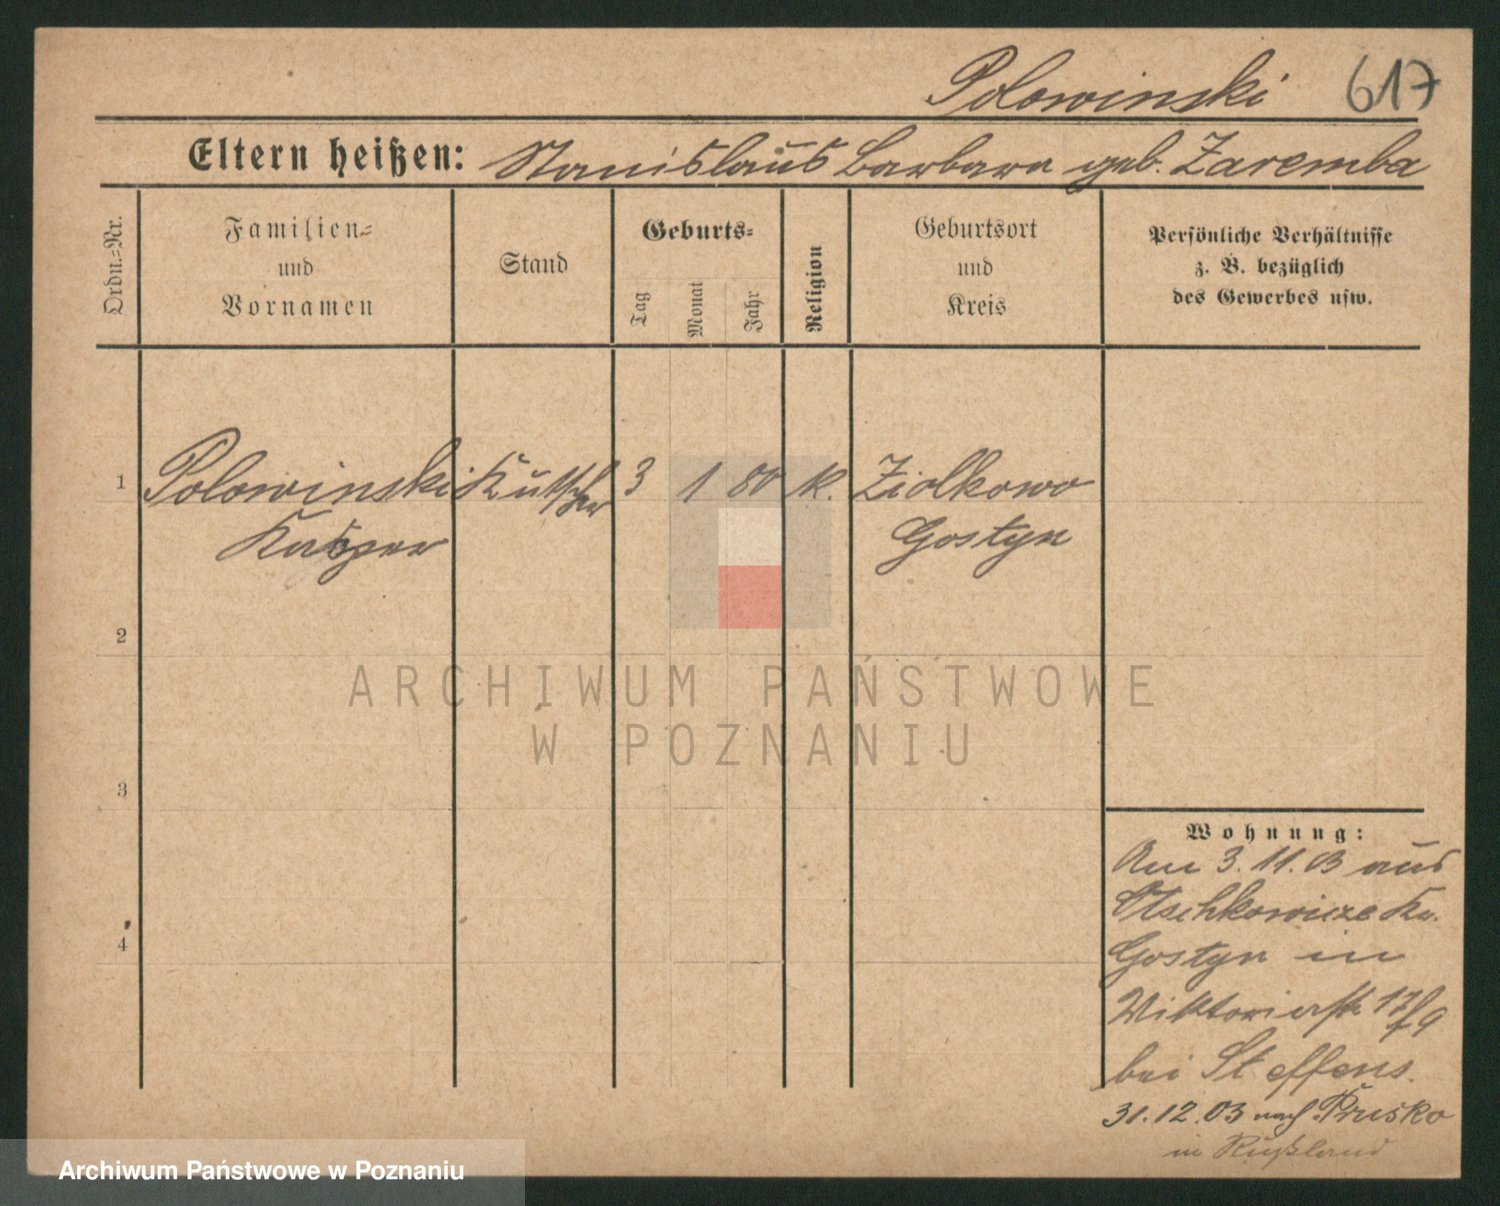 Polowinski 617
Eltern heißen: Stanislaus Barbara geb. Zaremba
Ordn.-Nr.
Familien-
und
Vornamen
Stand
Geburts-
Tag
Monat
Jahr
Religion
Geburtsort
und
Kreis
Persönliche Verhältnisse
z. B. bezüglich
des Gewerbes usw.
1 Polowinski Kutscher 3 1 80 k. Ziolkowo
Kasper Gostyn
2
3
4
Wohnung:
Am 3.11.03 aus
Kr.
Gostyn in
Viktoriastr 17/9
bei Steffens.
31.12.03 nach Prusko
in Rußland
ARCHIWUM PAŃSTWOWE
W POZNANIU
Archiwum Państwowe w Poznaniu